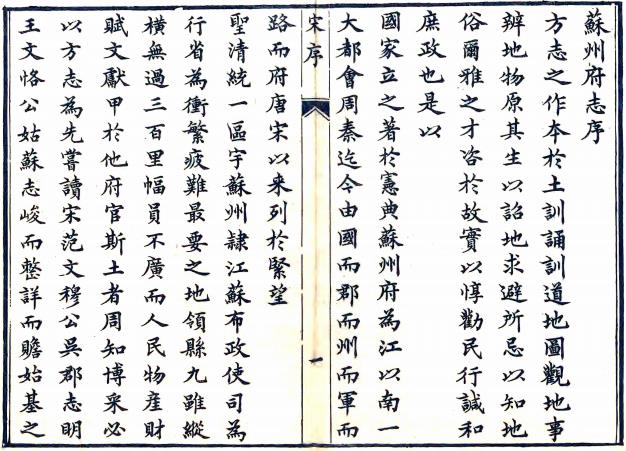 蘇州府志序
方志之作本於土訓誦訓道地圖觀地事
辨地物原其生以詔地求避所忌以知地
俗爾雅之才咨於故實以惇勸民行諴和
庶政也是以
國家立之著於憲典蘇州府為江以南一
大都會周秦迄今由國而郡而州而軍而
宋序
一
路而府唐宋以来列於緊望
聖清統一區宇蘇州隸江蘇布政使司為
行省為衝繁疲難最要之地領縣九雖縱
橫無過三百里幅員不廣而人民物產財
賦文獻甲於他府官斯土者周知博采必
以方志為先嘗讀宋范文穆公吳郡志明
王文恪公姑蘇志峻而整詳而贍始基之